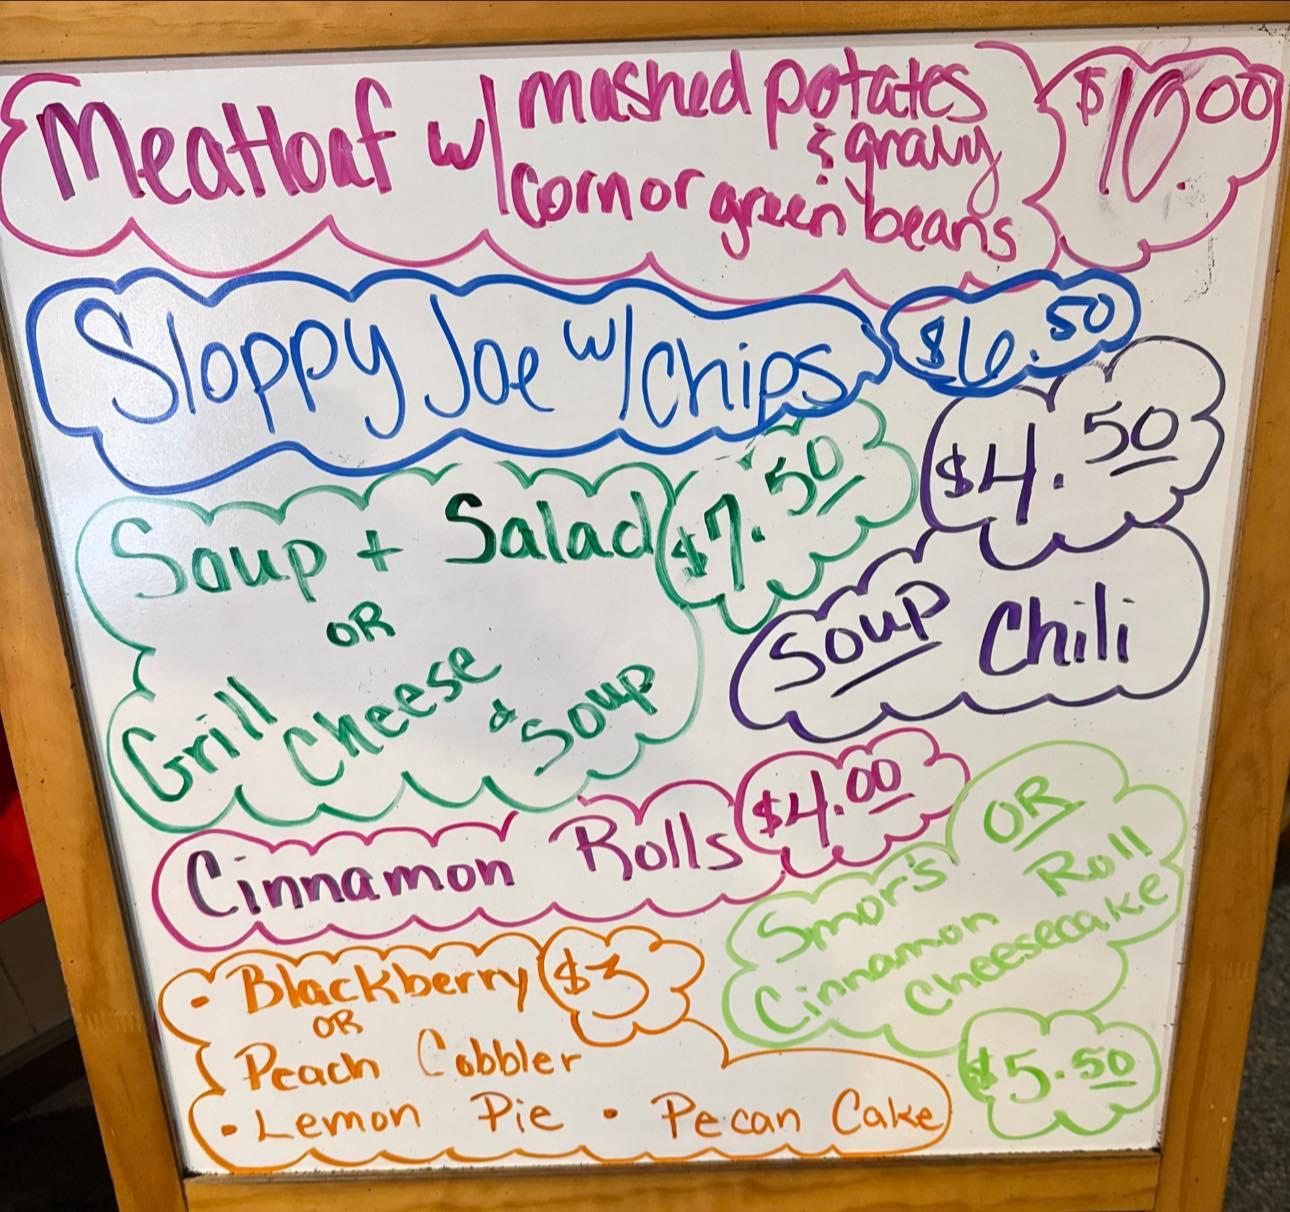 Meatloaf w/ mashed potatoes
& gravy
corn or green beans
$10.00
Sloppy Joe w/ chips $6.50
Soup + Salad $7.50
OR
Grill Cheese & Soup
$4.50
Soup Chili
Cinnamon Rolls $4.00
Smor's OR
Cinnamon Roll
Cheesecake
$5.50
· Blackberry $3
OR
Peach Cobbler
· Lemon Pie · Pecan Cake